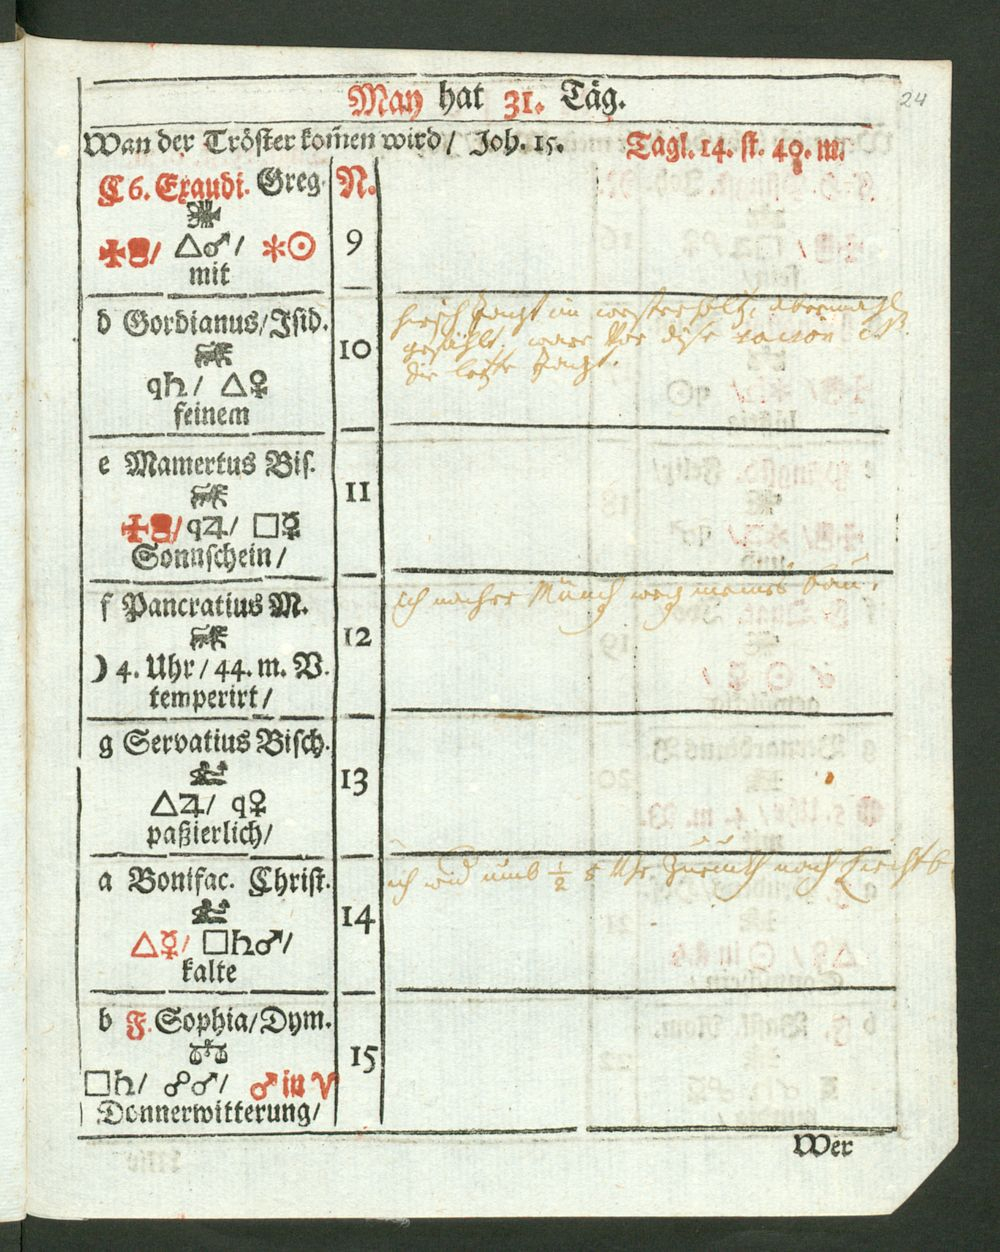 24
May hat 31. Täg.
Wan der Tröster kom̃en wird / Joh. 15. Tägl. 14. st. 49. m.
C 6. Exaudi. Greg. N.
/ △♂ / ✶☉ 9
mit
d Gordianus / Isid.
10
q♄ / △♀
feinem
die letzte
e Mamertus Bis.
11
/ q♃ / □☿
Sonnschein /
f Pancratius M.
ich nacher Münch weg meines bau.
12
) 4. Uhr / 44. m. V.
temperirt /
g Servatius Bisch.
13
△♃ / q♀
paßierlich /
a Bonifac. Christ.
umb ½ 5 Uhr nach
14
△☿ / □♄♂ /
kalte
b F. Sophia / Dym.
15
□♄ / ☍♂ / ♂ in ♈
Donnerwitterung /
Wer